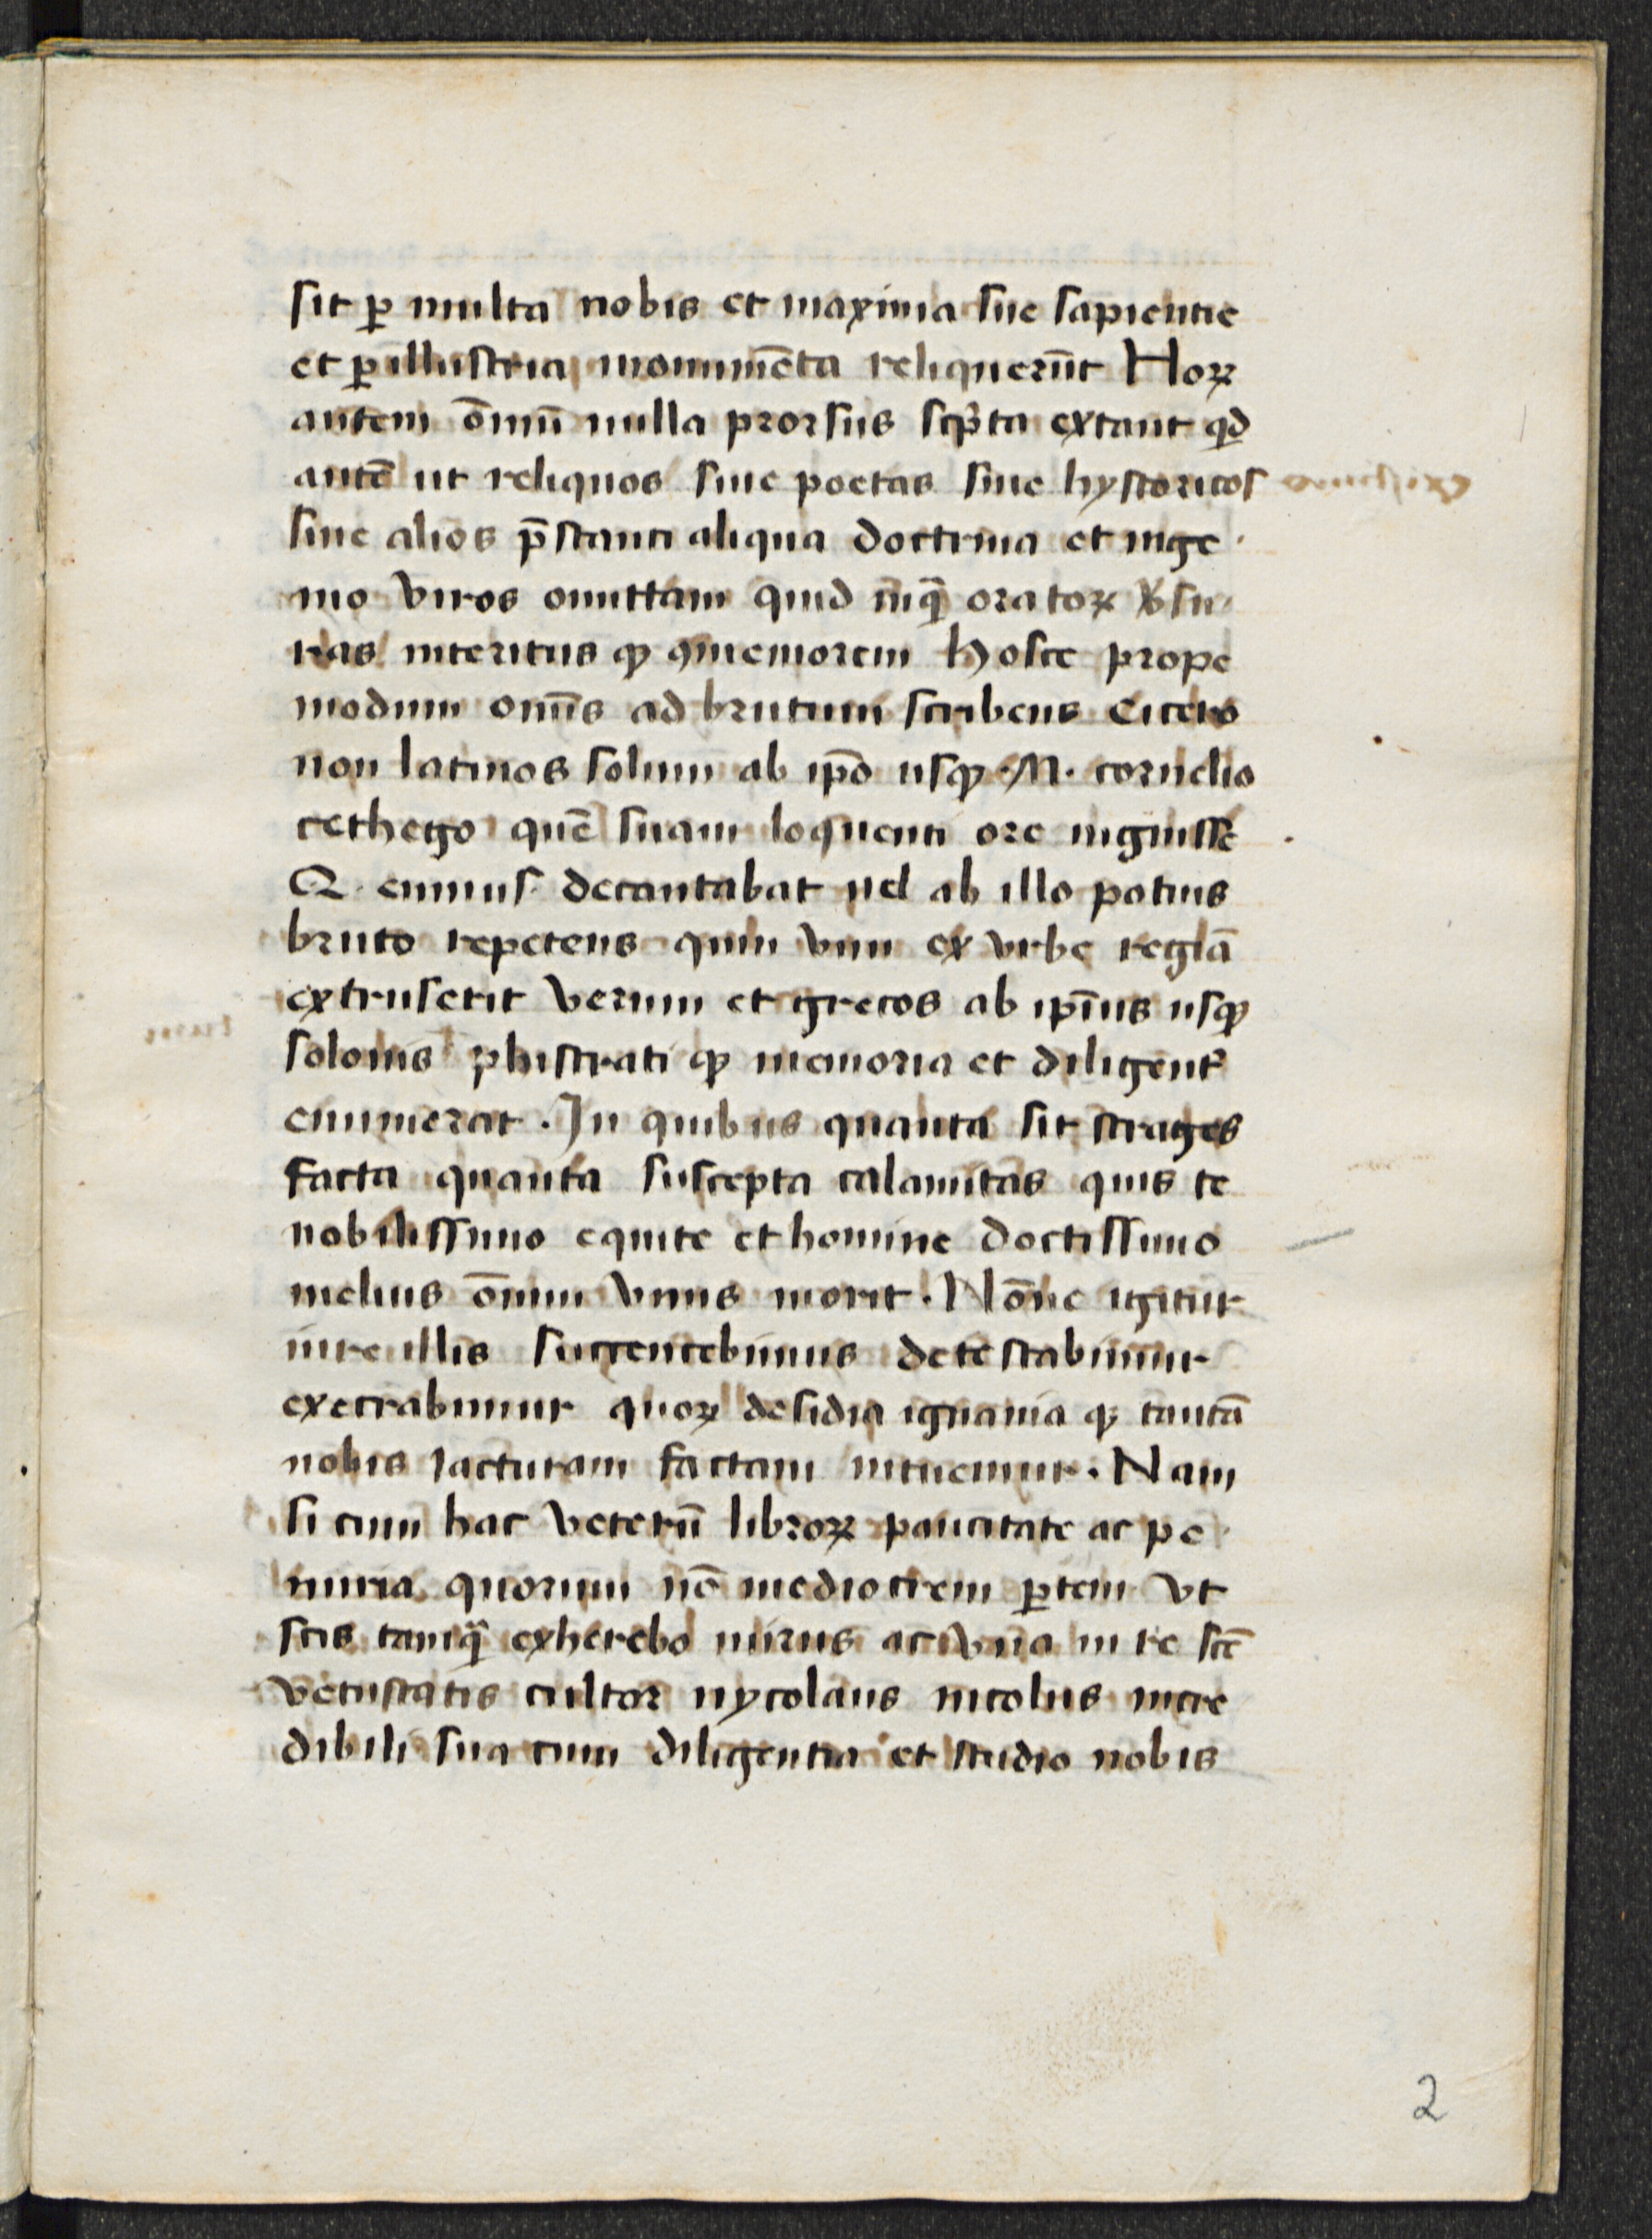 sit ꝑ multa nobis et maxima sue sapientie
et ꝑillustria monumēta reliquerūt Horꝝ
autem om̄niū nulla prorsus scp̄ta extant qd
autē ut reliquos siue poetas siue hystoricos
siue alios p̄stanti aliqua doctrina et inge
nio viros omittam quid inq̄ oratorꝝ
iteritus qꝫ ꝯmemorem Hosce prope
modum omēs ad brutum scribens Cicero
non latinos solum ab ip̄o usqꝫ .M. cornelio
cethego quē suam loquenti ore inguisse
Q. ennius decantabat uel ab illo potius
bruto repetens quin vim ex vrbe regiā
extruserit verum et grecos ab ip̄ius usqꝫ
solonis phistrati qꝫ memoria et diligent̄
enumerat. In quibus quanta sit strages
facta quanta suscepta calamitas quis te
nobilissimo equite et homine doctissimo
melius om̄nium vnus norit. Nōne igitur
iure illis sugcencebimus detestabimur
execrabimur quorꝝ desidia ignauia qꝫ tantā
nobis iacturam factam intuemur. Nam
si cum hac veterū librorꝝ paucitate ac pe
nuria quorum nō mediocrem ꝑtem vt
scis tamq̄ exherebo mirus ac vna in re scē
vetustatis cultor nycolaus nicolus incre
dibili sua cum diligentia et studio nobis
2